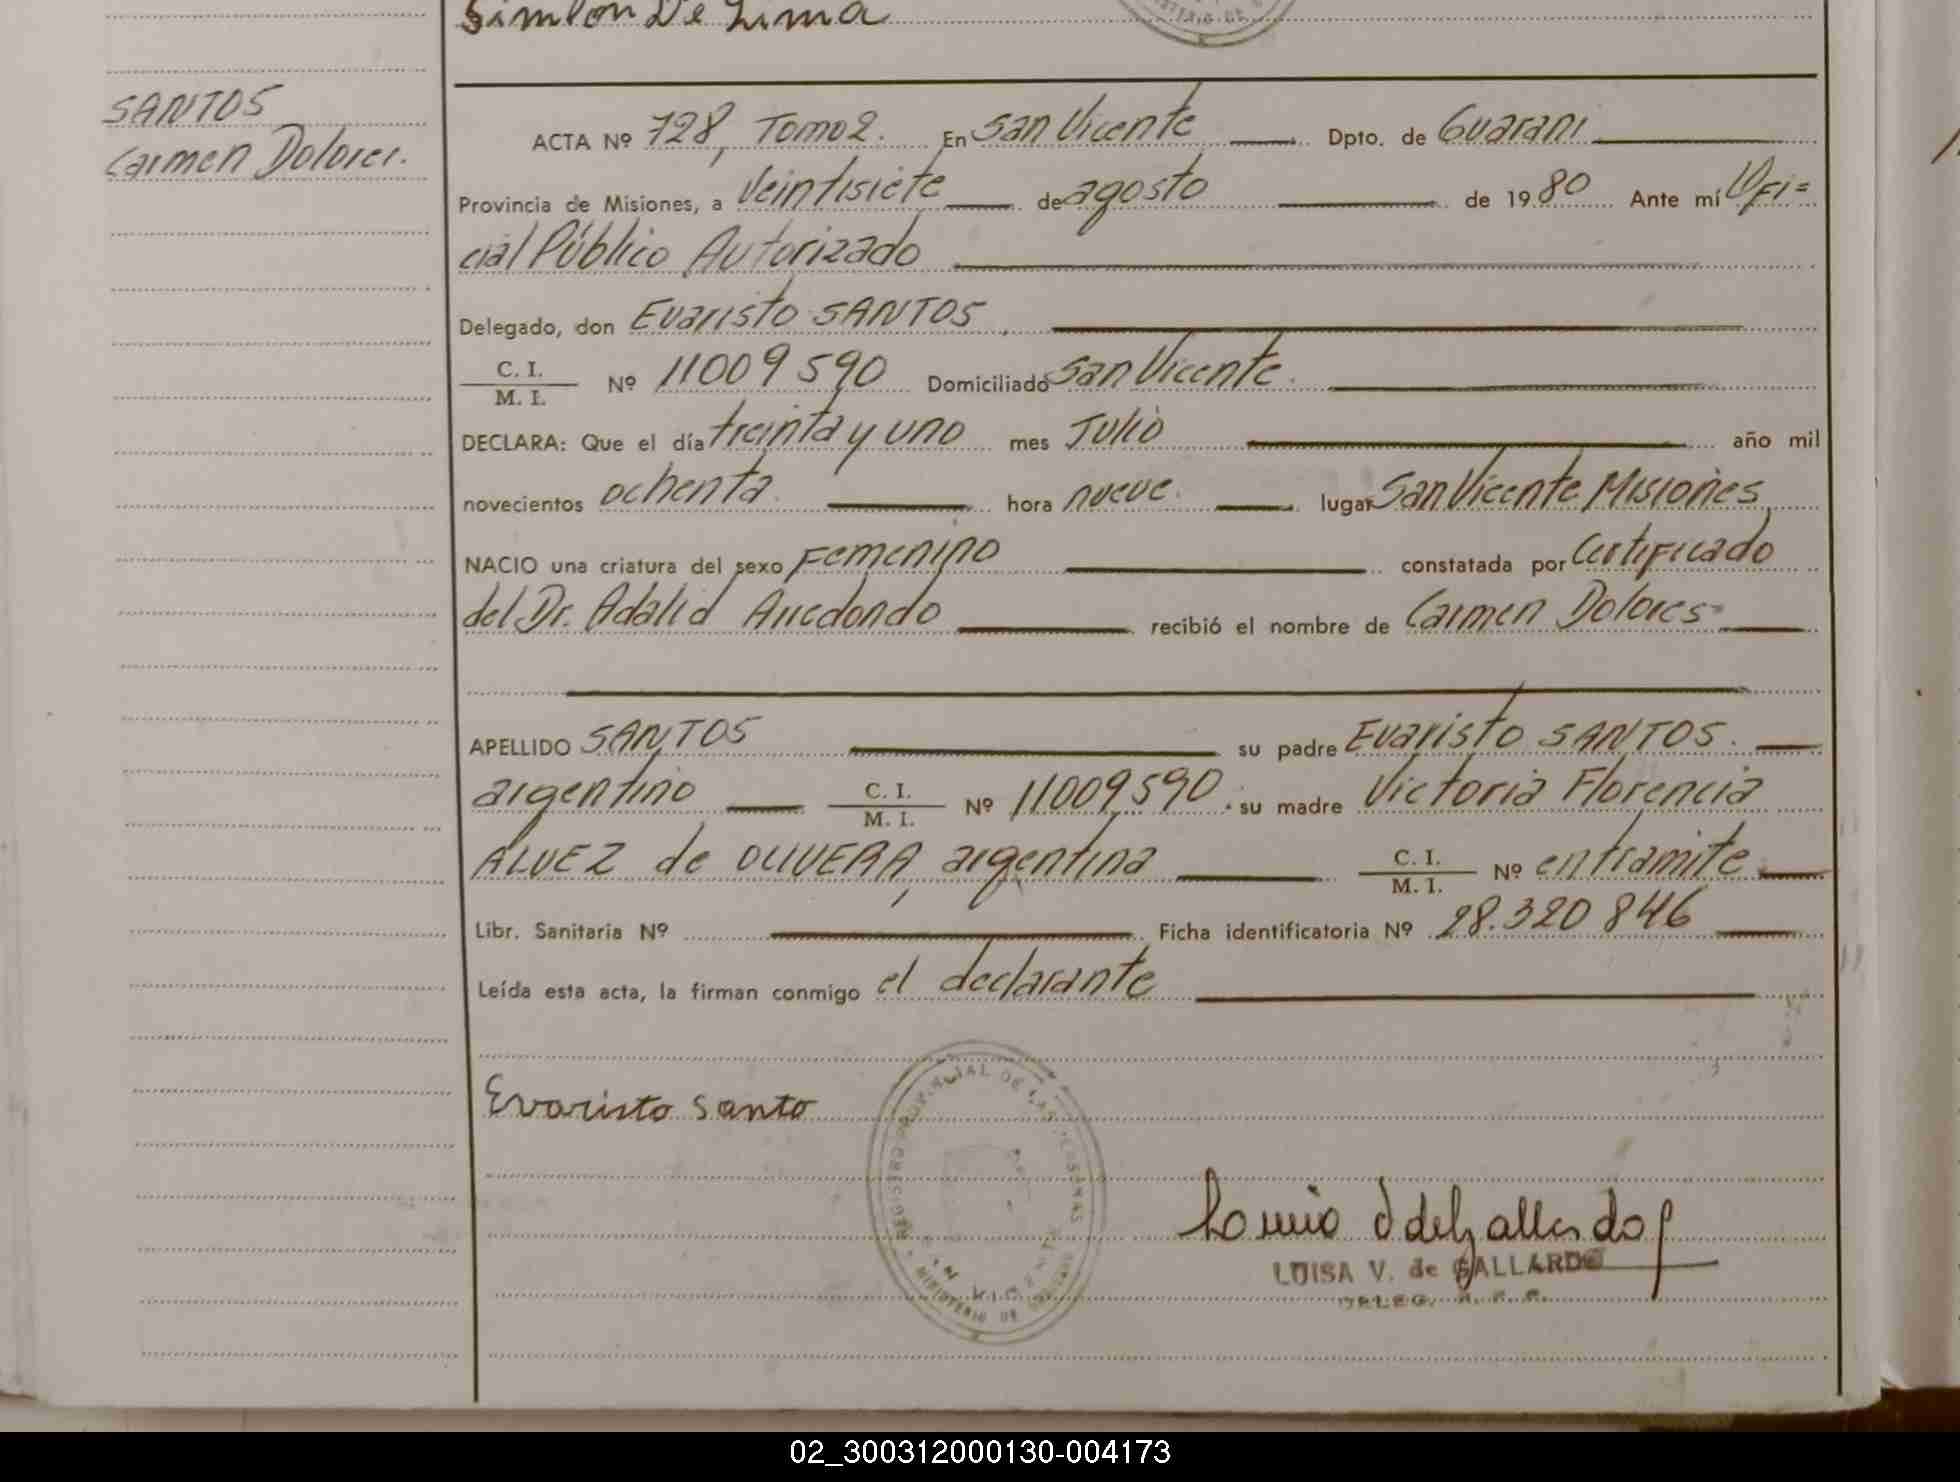 Simeon De Lima
SANTOS
Carmen Dolores.
ACTA Nº 728, Tomo 2. En San Vicente Dpto. de Guaraní
Provincia de Misiones, a Veintisiete de agosto de 1980 Ante mí Ofi=
cial Público Autorizado
Delegado, don Evaristo SANTOS
C. I.
M. I. Nº 11009590 Domiciliado San Vicente.
DECLARA: Que el día treinta y uno mes Julio año mil
novecientos ochenta. hora nueve. lugar San Vicente Misiones,
NACIO una criatura del sexo Femenino constatada por Certificado
del Dr. Adalid Arredondo recibió el nombre de Carmen Dolores
APELLIDO SANTOS su padre Evaristo SANTOS.
argentino C. I.
M. I. Nº 11009590. su madre Victoria Florencia
ALVEZ de OLIVERA, argentina C. I.
M. I. Nº en tramite
Libr. Sanitaria Nº Ficha identificatoria Nº 28.320 846
Leída esta acta, la firman conmigo el declarante
Evaristo Santo
REGISTRO PROVINCIAL DE LAS PERSONAS
SAN VICENTE
MINISTERIO DE
LUISA V. de GALLARDO
DELEG.
02_300312000130-004173